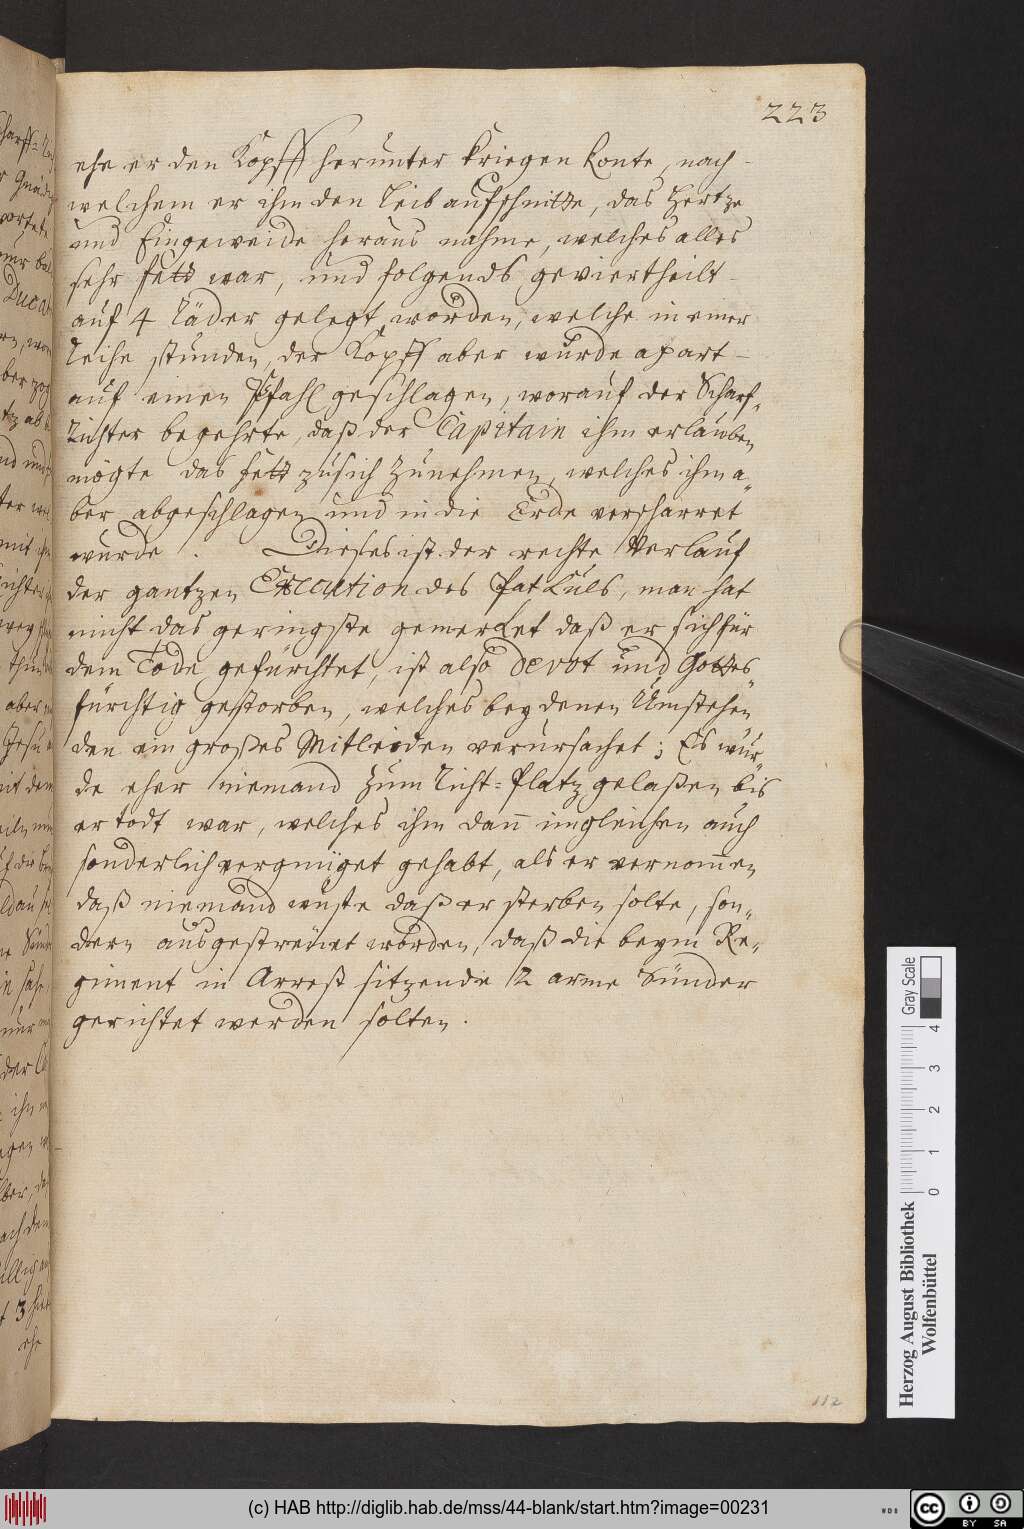 223
ehe er den Kopff herunter kriegen konte, nach-
welchem er ihm den Leib aufschnitte, das Hertze
und Eingeweide heraus nahme, welches alles
sehr fett war, und folgends geviertheilt
auf 4 Räder gelegt worden, welche in einer
Reihe stunden, der Kopff aber wurde apart
auf einen Pfahl geschlagen, worauf der Scharf-
Richter begehrte, daß der Capitain ihm erlauben
mögte das fett zu sich zunehmen, welches ihm a-
ber abgeschlagen und in die Erde verscharret
wurde. Dieses ist der rechte Verlauf
der gantzen Execution des Patkuls, man hat
nicht das geringste gemerket daß er sich für
dem Tode gefürchtet, ist also devot und Gottes-
fürchtig gestorben, welches bey denen Umstehen
den ein großes Mitleiden verursachet; Es wur-
de eher niemand zum Richt-Platz gelaßen bis
er todt war, welches ihm dann imgleichen auch
sonderlich vergnüget gehabt, als er vernommen
daß niemand wuste daß er sterben solte, son-
dern ausgestreuet worden, daß die beym Re-
giment in Arrest sitzende 2 arme Sünder
gerichtet werden solten.
112
Herzog August Bibliothek
Wolfenbüttel
0 1 2 3 4
Gray Scale
(c) HAB http://diglib.hab.de/mss/44-blank/start.htm?image=00231
WDB
cc BY SA